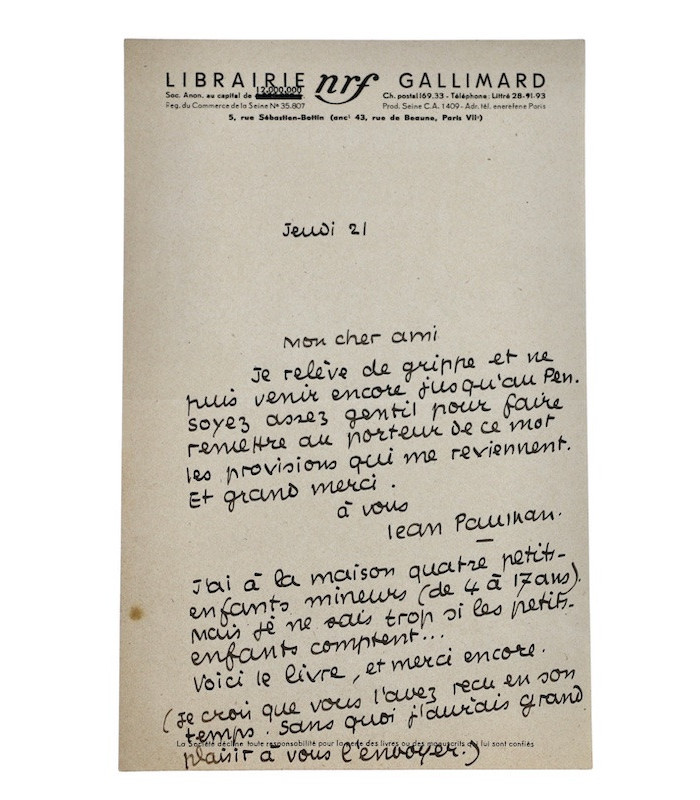 LIBRAIRIE nrf GALLIMARD
Soc. Anon. au capital de 12.000.000
Ch. postal 169.33 - Téléphone : Littré 28-91-93
Reg. du Commerce de la Seine Nº 35.807
Prod. Seine C.A. 1409 - Adr. tél. enerefene Paris
5, rue Sébastien-Bottin (ancᵗ 43, rue de Beaune, Paris VIIᵉ)
Jeudi 21
Mon cher ami
Je relève de grippe et ne
puis venir encore jusqu'au Pen.
soyez assez gentil pour faire
remettre au porteur de ce mot
les provisions qui me reviennent.
Et grand merci.
à vous
Jean Paulhan.
J'ai à la maison quatre petits-
enfants mineurs (de 4 à 17 ans).
Mais je ne sais trop si les petits-
enfants comptent...
Voici le livre, et merci encore.
(Je crois que vous l'avez reçu en son
temps. Sans quoi j'aurais grand
La Société décline toute responsabilité pour la perte des livres ou des manuscrits qui lui sont confiés
plaisir à vous l'envoyer.)